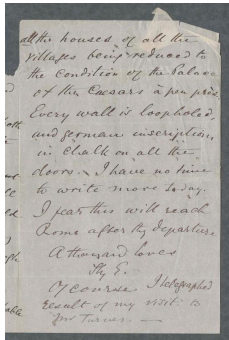 all the houses of all the
villages being reduced to
the condition of the Palace
of the Caesars à peu près
Every wall is loopholed,
and german inscriptions
in chalk on all the
doors. I have no time
to write more today.
I fear this will reach
Rome after thy departure
A thousand loves
Thy E.
Of course I telegraphed
result of my visit to
Mr Turner. —